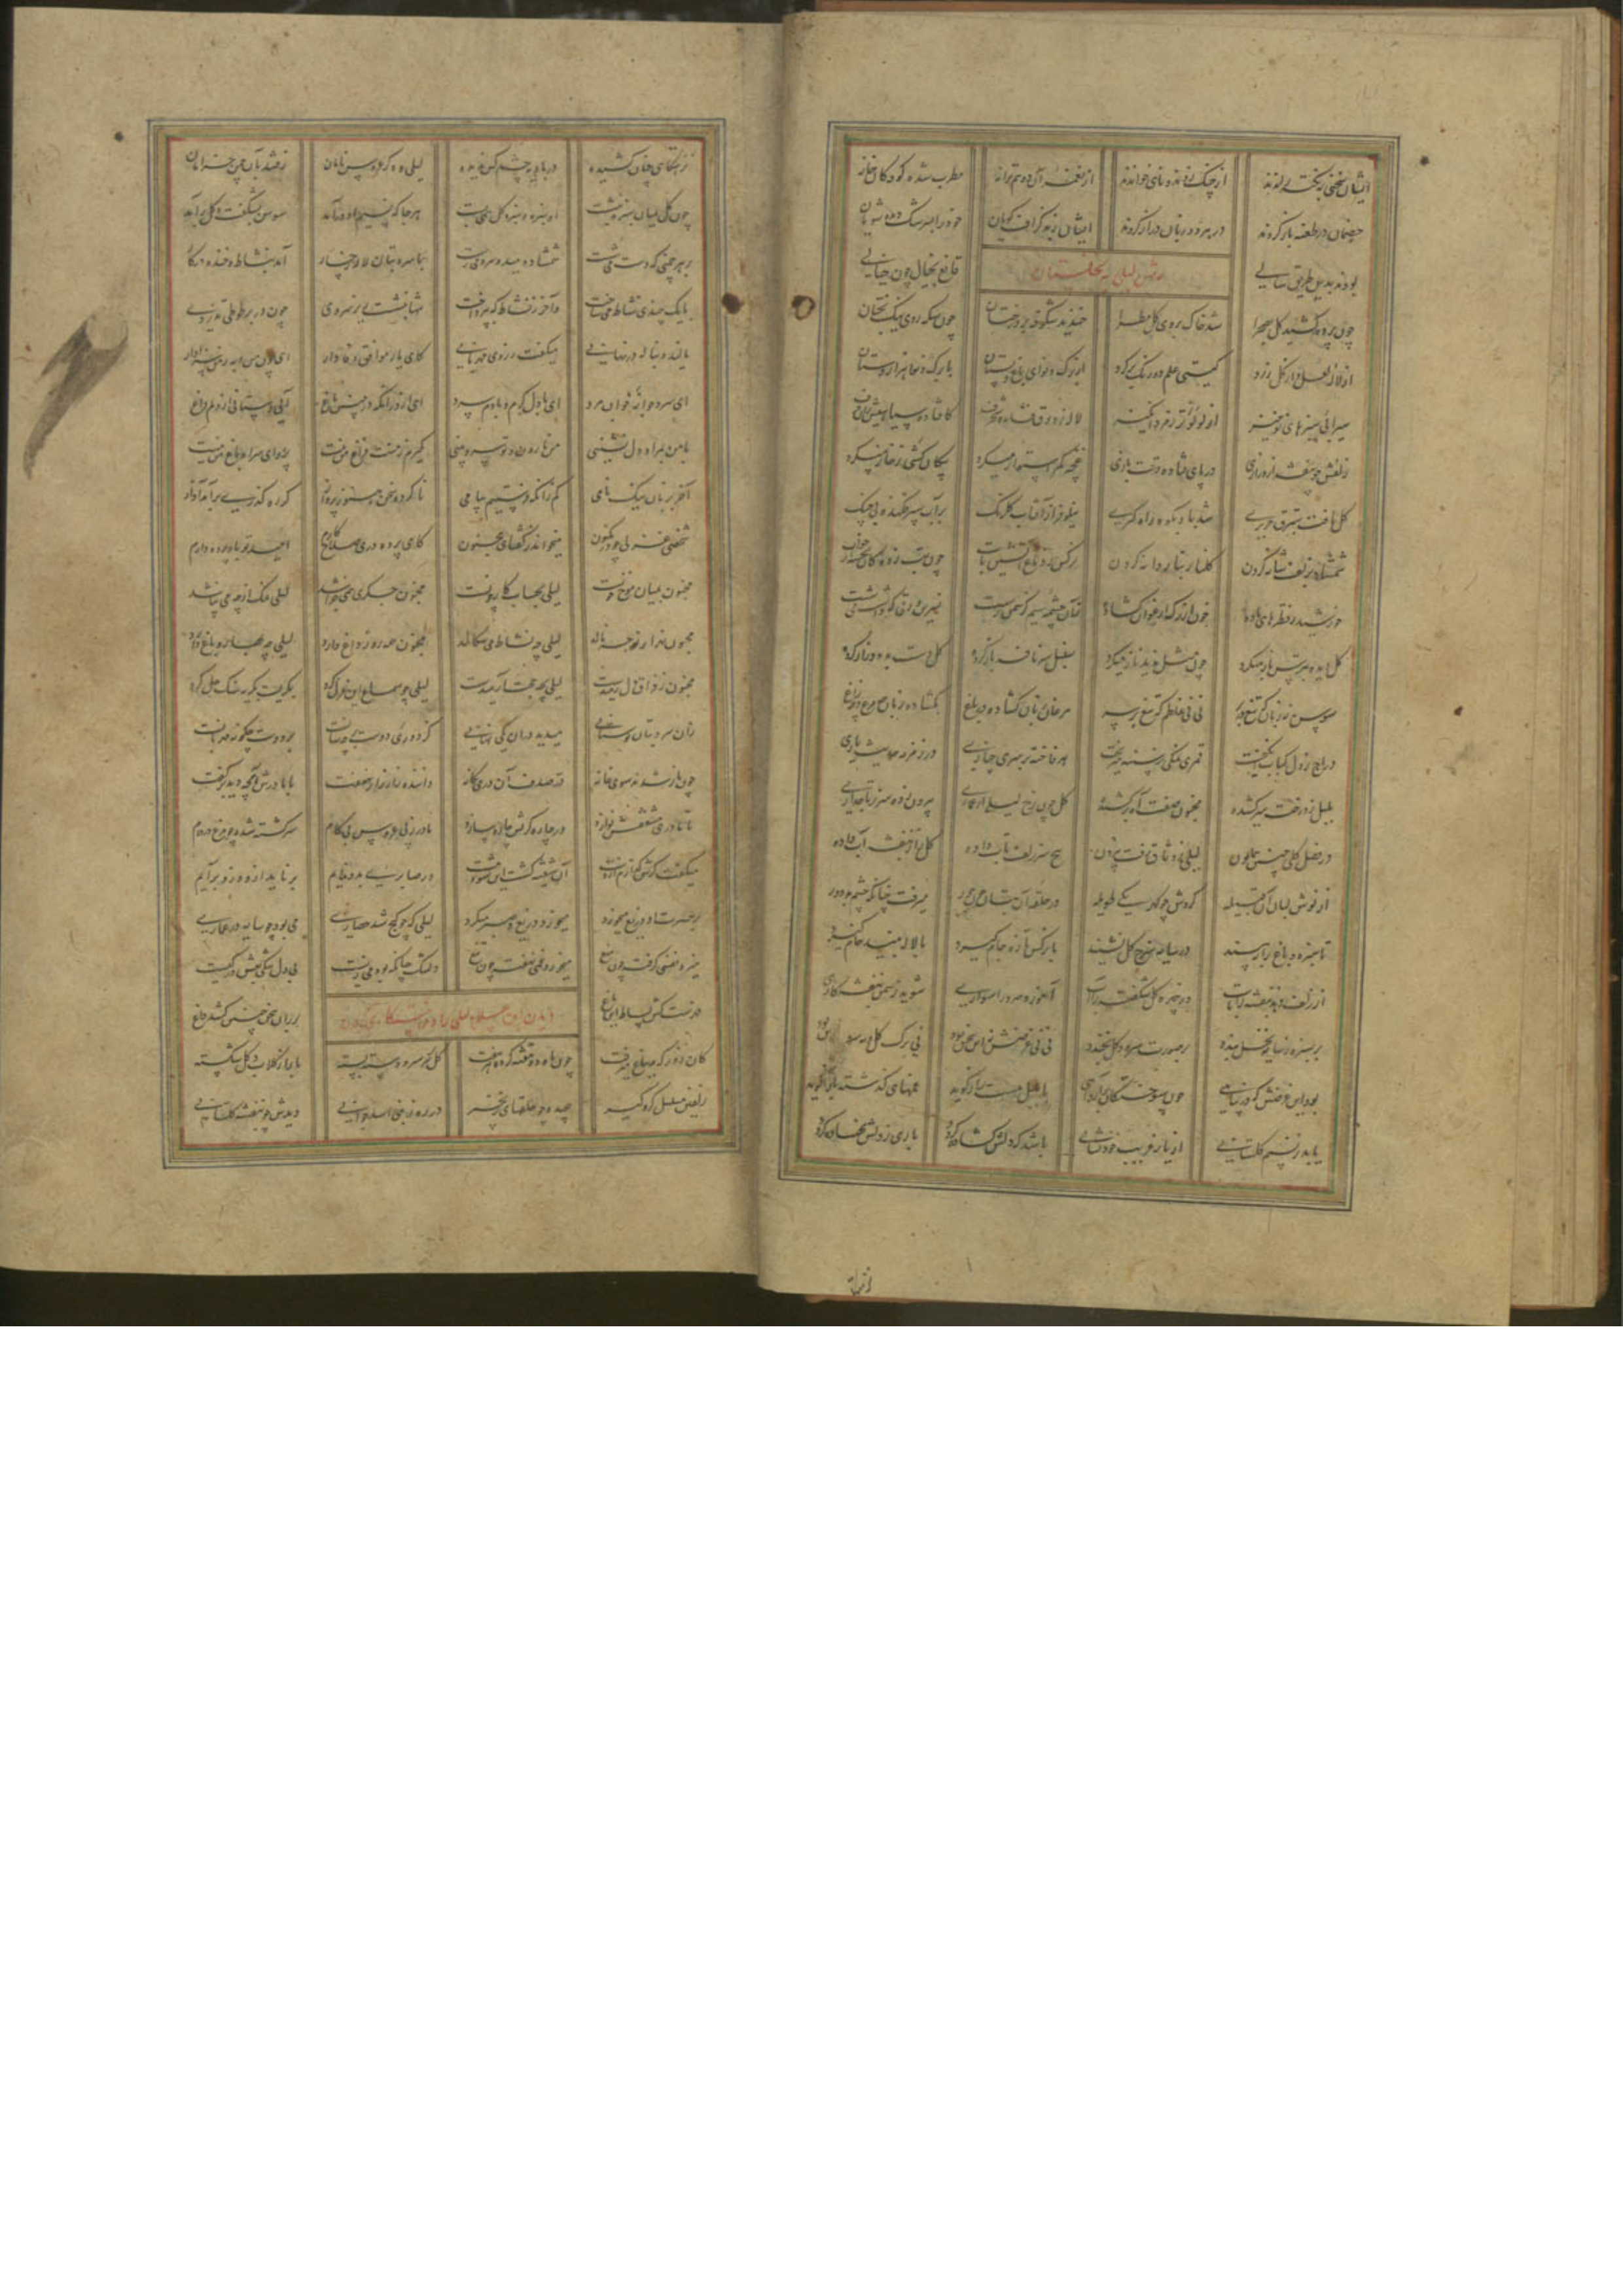 ایشان سخنی ز بخت راندند از چنگ زدند و نای خواندند از نغمه آن دو هم ترانه مطرب شده کودکان خانه
خصمان در طعنه باز کردند در هر دو زبان دراز کردند ایشان ز بد گزاف گویان خود را بسرشک دیده شویان
بودند بدین طریق سالی قانع بخیال چون خیالی
رفتن لیلی به نخلستان
چون پرده کشید گل بصحرا شد خاک بروی گل مطرا خندید شکوفه بر درختان چون سکه روی نیکبختان
از لاله لعل و از گل زرد گیتی علم دو رنگ بر کرد از برگ و نوای باغ و بستان با برگ و نوا هزار دستان
سیرابی سبزهای نوخیز از لؤلؤ تر زمرد انگیز لاله ز ورق فشانده شنگرف کافتاده سیاهیش بر آن حرف
زلفین بنفشه از درازی در پای فتاده وقت بازی غنچه کمر استوار میکرد پیکان کشی ز خار میکرد
گل یافت ستبرق حریری شد باد بگوشواره گیری نیلوفر از آفتاب گلرنگ بر آب سپر فکنده بی جنگ
شمشاد بزلف شانه کردن گلنار بنار دانه کردن نرگس ز دماغ آتشین تاب چون تب زدگان بجسته از خواب
خورشید ز قطرهای باده خون از رگ ارغوان گشاده زان چشمه سیم کز سمن رست نسرین ورقی که داشت می شست
گل دیده ببوس باز میکرد چون مثل ندید ناز میکرد سنبل سر نافه باز کرده گل دست بدو دراز کرده
سوسن نه زبان که تیغ در بر نی نی غلطم که تیغ بر سر مرغان زبان گشاده در باغ بگشاده زبان مرغ بر زاغ
دراج ز دل کباب انگیخت قمری نمکی ز سینه میریخت هر فاخته بر سر چناری در زمزمه حدیث یاری
بلبل ز درخت سر کشیده مجنون صفت آه بر کشیده گل چون رخ لیلی از عماری بیرون زده سر ز تاجداری
در فصل گلی چنین همایون لیلی ز وثاق رفت بیرون سر زلف تاب داده گل را ز بنفشه آب داده
از نوش لبان آن قبیله گردش چو گهر یکی طویله در حلقه آن بتان چون حور میرفت چنانکه چشم بد دور
تا سبزه و باغ را ببیند در سایه سرخ گل نشیند با نرگس تازه جام گیرد با لاله نبید خام گیرد
از زلف دهد بنفشه را تاب در چهره گل شکفته را آب آموزد سرو را سواری شوید ز سمن بنفشه کاری
بر سبزه ز سایه نخل بندد بر صورت سرو و گل بخندد نی نی غرضش نه این سخن بود نی برگ گل و نه سرو بن بود
بود این غرضش که در پناهی چون سوختگان برآرد آهی با بلبل مست راز گوید غمهای گذشته باز گوید
یابد ز نسیم گلستانی از یار غریب خود نشانی باشد که دلش گشاده گردد باری ز دلش نهاده گردد
نزهتگاهی چنان کشیده لیلی و دگر عروس نامان رفتند بآن چمن خرامان
چون گل بمیان سبزه بنشست بر سبزه گل همی بست هر جا که نسیم او درآمد سوسن بشکفت و گل برآمد
بر هر چمنی که دست می شست شمشاد دمید و سرو می رست با سرو بتان لاله رخسار آمد بنشاط و خنده در کار
تا یک چندی نشاط می ساخت و آخر ز نشاط گه بپرداخت تنها بنشست زیر سروی چون بر پر طوطی تذروی
نالید و بناله در نهانی میگفت ز روی مهربانی کای یار موافق وفادار ای چون من و هم بمن سزاوار
ای سرو جوانه جوانمرد ای با دل گرم و با دم سرد ای از در آنکه در چنین باغ آیی و ستانی از دلم داغ
با من بمراد دل نشینی من نارون و تو سرو بینی گیرم ز منت فراغ من نیست پروای سرا و باغ من نیست
آخر بزبان نیک نامی کم زانکه فرستیم پیامی ناکرده سخن هنوز پرواز کز رهگذری برآمد آواز
شخصی غزلی چو در مکنون میخواند ز گفتهای مجنون کای پرده در صلاح کارم امید تو باد پرده دارم
مجنون بمیان موج خونست لیلی بحساب کار چونست مجنون جگری همی خراشد لیلی نمک از چه می تراشد
مجنون بهزار نوحه نالد لیلی چه نشاط می سگالد مجنون همه درد و داغ دارد لیلی چه بهار و باغ دارد
مجنون ز فراق دل رمیدست لیلی بچه حجت آرمیدست لیلی چو سماع این غزل کرد بگریست بگریه سنگ حل کرد
زان سرو بتان بوستانی میدید در آن یکی نهانی کز دوری دوست بر چسانست بر دوست چگونه مهربانست
چون باز شدند سوی خانه شد در صدف آن در یگانه داننده راز راز ننهفت با مادرش آنچه دید برگفت
تا مادر مشفقش نوازد در چاره گریش چاره سازد مادر ز پی عروس ناکام سرگشته شده چو مرغ در دام
میگفت گرش گذارم از دست آن شیفته گشت این شود مست در صابریی بدو نمایم بر ناید ازو وزو برآیم
بر حسرت او دریغ میخورد میخورد دریغ و صبر میکرد لیلی که چو گنج شد حصاری می بود چو سایه در عماری
میزد نفسی گرفته چون میغ میخورد غمی نهفته چون تیغ دلتنگ چنانکه بود می زیست بی دل تنگی بعشق در کیست
فهرست کش بساط این باغ بر ران سخن چنین کشد داغ
دیدن ابن سلام لیلی را و خواستگاری کردن
کان روز که مه بباغ میرفت چون ماه دو هفته کرده هر هفت گل بر سر سرو دسته بسته بازار گلاب و گل شکسته
زلفین مسلسل گره گیر پیچیده چو حلقهای زنجیر در ره ز بنی اسد جوانی دیدش چو شکفته گلستانی